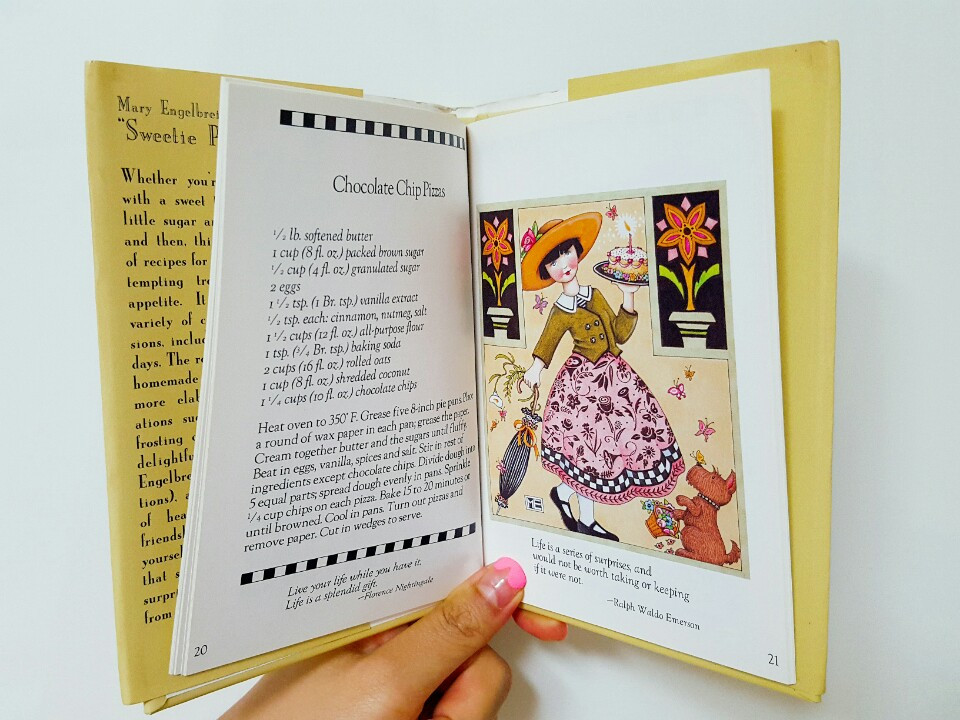 Mary Engelbrei
"Sweetie P
Whether you'r
with a sweet
little sugar a
and then, thi
of recipes for
tempting tre
appetite. It
variety of c
sions, inclu
days. The re
homemade
more elab
ations su
frosting
delightfu
Engelbre
tions), a
of hea
friendsh
yoursel
that s
surpr
from
Chocolate Chip Pizzas
1/2 lb. softened butter
1 cup (8 fl. oz.) packed brown sugar
1/2 cup (4 fl. oz.) granulated sugar
2 eggs
1 1/2 tsp. (1 Br. tsp.) vanilla extract
1/2 tsp. each: cinnamon, nutmeg, salt
1 1/2 cups (12 fl. oz.) all-purpose flour
1 tsp. (3/4 Br. tsp.) baking soda
2 cups (16 fl. oz.) rolled oats
1 cup (8 fl. oz.) shredded coconut
1 1/4 cups (10 fl. oz.) chocolate chips
Heat oven to 350° F. Grease five 8-inch pie pans. Place
a round of wax paper in each pan; grease the paper.
Cream together butter and the sugars until fluffy.
Beat in eggs, vanilla, spices and salt. Stir in rest of
ingredients except chocolate chips. Divide dough into
5 equal parts; spread dough evenly in pans. Sprinkle
1/4 cup chips on each pizza. Bake 15 to 20 minutes or
until browned. Cool in pans. Turn out pizzas and
remove paper. Cut in wedges to serve.
Live your life while you have it.
Life is a splendid gift.
—Florence Nightingale
20
ME
Life is a series of surprises, and
would not be worth taking or keeping
if it were not.
—Ralph Waldo Emerson
21